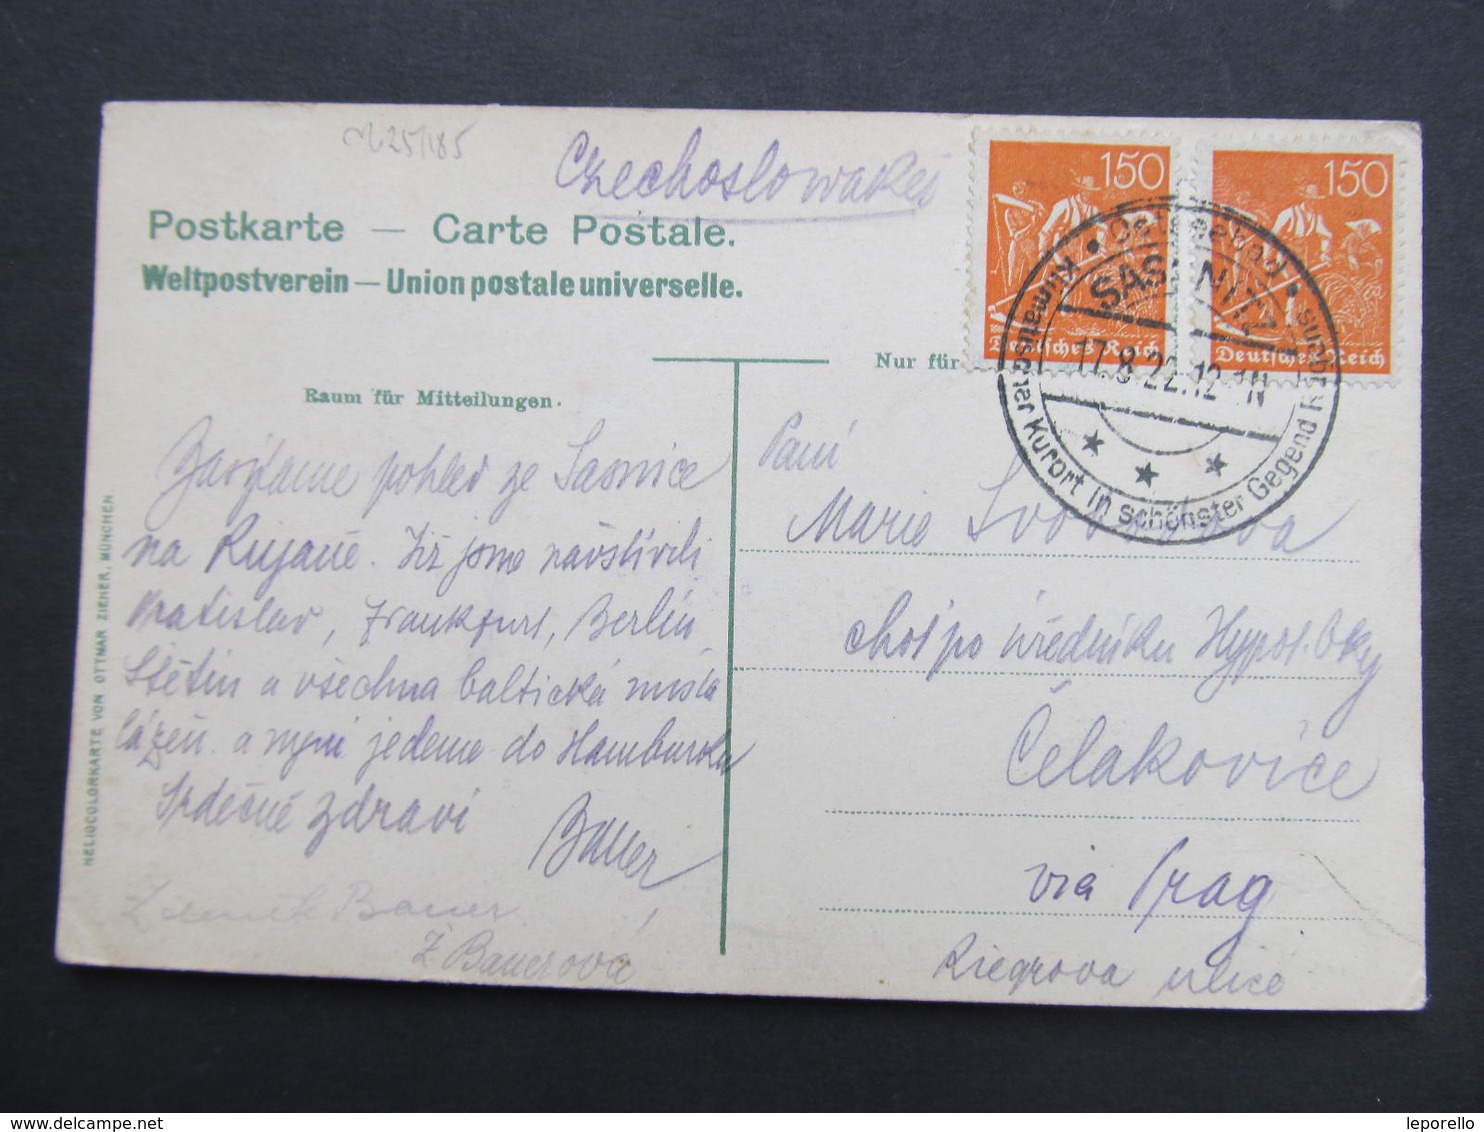 25/185
Czechoslowakei
Postkarte — Carte Postale.
Weltpostverein — Union postale universelle.
Nur für
Raum für Mitteilungen.
150
Deutsches Reich
150
Deutsches Reich
Ostseebad
SASSNITZ
17.8.22.12-1N
Klimatischer Kurort in schönster Gegend Rügens
Zasíláme pohled ze Sasnice
na Rujaně. Již jsme navštívili
Vratislav, Frankfurt, Berlín
Štětín a všechna baltická místa
lázeň. a nyní jedeme do Hamburku
Srdečně zdraví
Bauer
Zdeněk Bauer
Z Bauerová
Paní
Marie Svobodova
choť po úředníku Hypot. Bky
Čelakovice
via Prag
Riegrova ulice
HELIOCOLORKARTE VON OTTMAR ZIEHER, MÜNCHEN
leporello